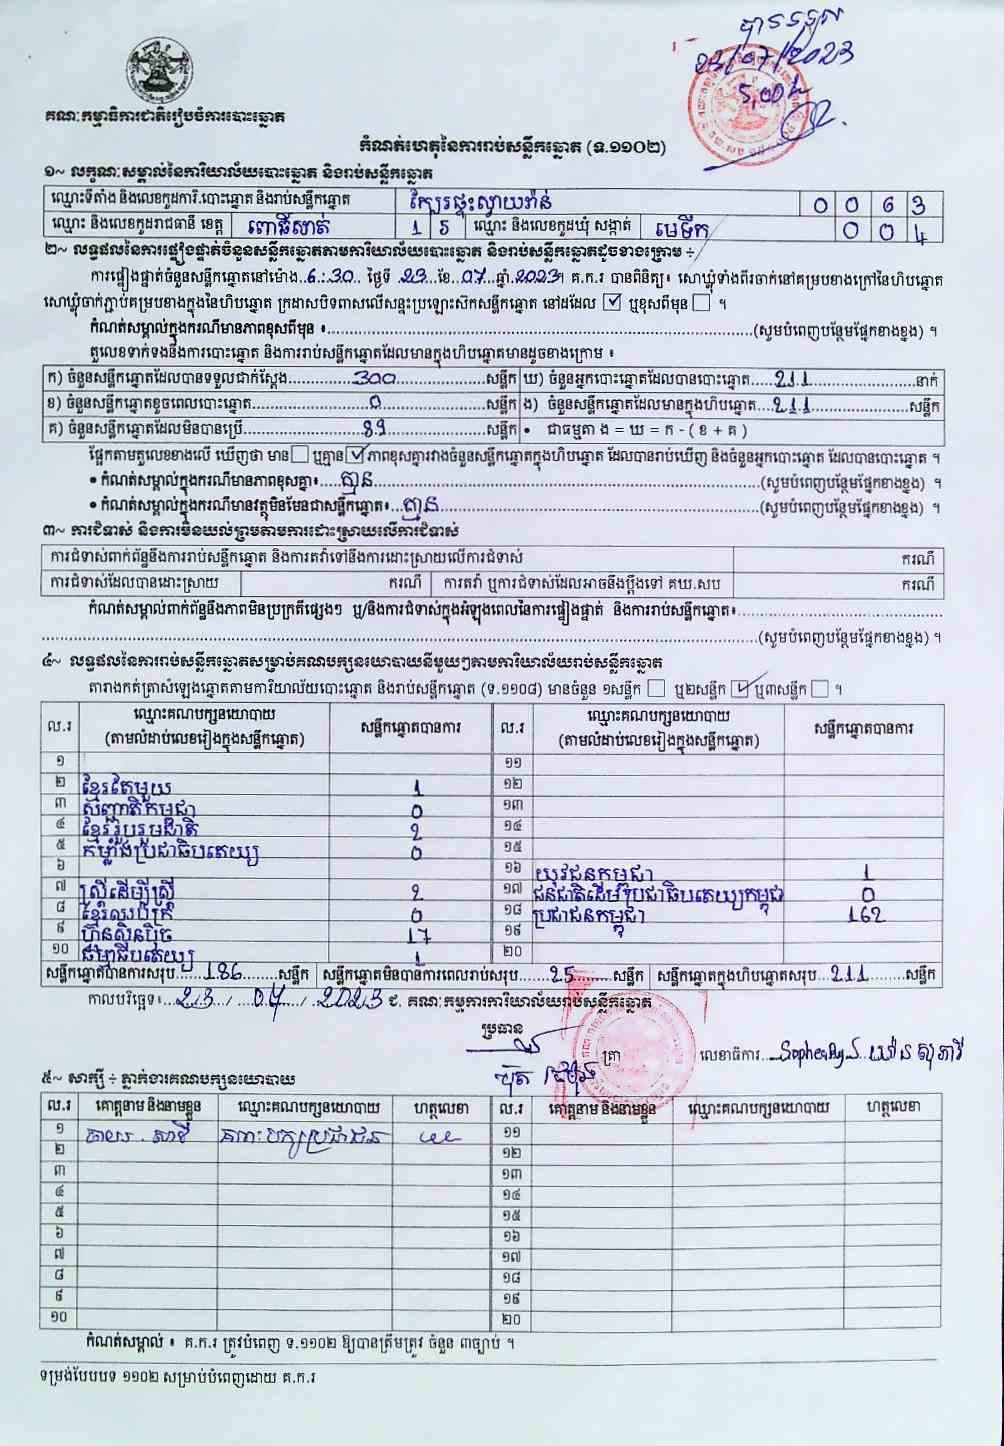 បានទទួល
23/07/2023
5,00ល
គណៈកម្មាធិការជាតិរៀបចំការបោះឆ្នោត
កំណត់ហេតុនៃការរាប់សន្លឹកឆ្នោត (ទ.១១០២)
១~ លក្ខណៈសម្គាល់នៃការិយាល័យបោះឆ្នោត និងរាប់សន្លឹកឆ្នោត
ឈ្មោះទីតាំង និងលេខកូដការិ.បោះឆ្នោត និងរាប់សន្លឹកឆ្នោត ក្បែរផ្ទះស្វាយវ៉ាន់ 0 0 6 3
ឈ្មោះ និងលេខកូដរាជធានី ខេត្ត ពោធិ៍សាត់ 1 5 ឈ្មោះ និងលេខកូដឃុំ សង្កាត់ មេទឹក 0 0 4
២~ លទ្ធផលនៃការផ្ទៀងផ្ទាត់ចំនួនសន្លឹកឆ្នោតតាមការិយាល័យបោះឆ្នោត និងរាប់សន្លឹកឆ្នោតដូចខាងក្រោម ÷
ការផ្ទៀងផ្ទាត់ចំនួនសន្លឹកឆ្នោតនៅម៉ោង..6:30.. ថ្ងៃទី 23..ខែ..07..ឆ្នាំ.2023។ គ.ក.រ បានពិនិត្យ៖ សោឃ្លុំទាំងពីរចាក់នៅគម្របខាងក្រៅនៃហិបឆ្នោត
សោឃ្លុំចាក់ភ្ជាប់គម្របខាងក្នុងនៃហិបឆ្នោត ក្រដាសបិទពាសលើសន្ទះប្រឡោះស៊កសន្លឹកឆ្នោត នៅដដែល ☑ ឬខុសពីមុន ☐ ។
កំណត់សម្គាល់ក្នុងករណីមានភាពខុសពីមុន ៖....(សូមបំពេញបន្ថែមផ្នែកខាងខ្នង) ។
តួលេខទាក់ទងនឹងការបោះឆ្នោត និងការរាប់សន្លឹកឆ្នោតដែលមានក្នុងហិបឆ្នោតមានដូចខាងក្រោម ៖
ក) ចំនួនសន្លឹកឆ្នោតដែលបានទទួលជាក់ស្តែង....300....សន្លឹក ឃ) ចំនួនអ្នកបោះឆ្នោតដែលបានបោះឆ្នោត....211....នាក់
ខ) ចំនួនសន្លឹកឆ្នោតខូចពេលបោះឆ្នោត....0....សន្លឹក ង) ចំនួនសន្លឹកឆ្នោតដែលមានក្នុងហិបឆ្នោត....211....សន្លឹក
គ) ចំនួនសន្លឹកឆ្នោតដែលមិនបានប្រើ....89....សន្លឹក • ជាធម្មតា ង = ឃ = ក - ( ខ + គ )
ផ្អែកតាមតួលេខខាងលើ ឃើញថា មាន ☐ ឬគ្មាន ☑ ភាពខុសគ្នារវាងចំនួនសន្លឹកឆ្នោតក្នុងហិបឆ្នោត ដែលបានរាប់ឃើញ និងចំនួនអ្នកបោះឆ្នោត ដែលបានបោះឆ្នោត ។
• កំណត់សម្គាល់ក្នុងករណីមានភាពខុសគ្នា៖....គ្មាន....(សូមបំពេញបន្ថែមផ្នែកខាងខ្នង) ។
• កំណត់សម្គាល់ក្នុងករណីមានវត្ថុមិនមែនជាសន្លឹកឆ្នោត៖...គ្មាន....(សូមបំពេញបន្ថែមផ្នែកខាងខ្នង) ។
៣~ ការជំទាស់ និងការមិនយល់ព្រមតាមការដោះស្រាយលើការជំទាស់
ការជំទាស់ពាក់ព័ន្ធនឹងការរាប់សន្លឹកឆ្នោត និងការតវ៉ាទៅនឹងការដោះស្រាយលើការជំទាស់ ករណី
ការជំទាស់ដែលបានដោះស្រាយ ករណី ការតវ៉ា ឬការជំទាស់ដែលអាចនឹងប្តឹងទៅ គឃ.សប ករណី
កំណត់សម្គាល់ពាក់ព័ន្ធនឹងភាពមិនប្រក្រតីផ្សេងៗ ឬ/និងការជំទាស់ក្នុងអំឡុងពេលនៃការផ្ទៀងផ្ទាត់ និងការរាប់សន្លឹកឆ្នោត៖....
....(សូមបំពេញបន្ថែមផ្នែកខាងខ្នង) ។
៤~ លទ្ធផលនៃការរាប់សន្លឹកឆ្នោតសម្រាប់គណបក្សនយោបាយនីមួយៗតាមការិយាល័យរាប់សន្លឹកឆ្នោត
តារាងកត់ត្រាសំឡេងឆ្នោតតាមការិយាល័យបោះឆ្នោត និងរាប់សន្លឹកឆ្នោត (ទ.១១០៨) មានចំនួន ១សន្លឹក ☐ ឬ២សន្លឹក ☑ ឬ៣សន្លឹក ☐ ។
ល.រ ឈ្មោះគណបក្សនយោបាយ (តាមលំដាប់លេខរៀងក្នុងសន្លឹកឆ្នោត) សន្លឹកឆ្នោតបានការ ល.រ ឈ្មោះគណបក្សនយោបាយ (តាមលំដាប់លេខរៀងក្នុងសន្លឹកឆ្នោត) សន្លឹកឆ្នោតបានការ
១ ១១
២ ខ្មែរតែមួយ 1 ១២
៣ សញ្ជាតិកម្ពុជា 0 ១៣
៤ ខ្មែររួបរួមជាតិ 2 ១៤
៥ កម្លាំងប្រជាធិបតេយ្យ 0 ១៥
៦ ១៦ យុវជនកម្ពុជា 1
៧ ស្ត្រីដើម្បីស្ត្រី 2 ១៧ ជនជាតិដើមប្រជាធិបតេយ្យកម្ពុជា 0
៨ ខ្មែរឈប់ក្រ 0 ១៨ ប្រជាជនកម្ពុជា 162
៩ ហ៊្វុនស៊ិនប៉ិច 17 ១៩
១០ ធម្មាធិបតេយ្យ 1 ២០
សន្លឹកឆ្នោតបានការសរុប....186....សន្លឹក សន្លឹកឆ្នោតមិនបានការពេលរាប់សរុប....25....សន្លឹក សន្លឹកឆ្នោតក្នុងហិបឆ្នោតសរុប...211....សន្លឹក
កាលបរិច្ឆេទ៖...23.../...07.../...2023 ជ. គណៈកម្មការការិយាល័យរាប់សន្លឹកឆ្នោត
ប្រធាន
ត្រា លេខាធិការ....
៥~ សាក្សី ÷ ភ្នាក់ងារគណបក្សនយោបាយ
ល.រ គោត្តនាម និងនាមខ្លួន ឈ្មោះគណបក្សនយោបាយ ហត្ថលេខា ល.រ គោត្តនាម និងនាមខ្លួន ឈ្មោះគណបក្សនយោបាយ ហត្ថលេខា
១ គណៈបក្សប្រជាជន ១១
២ ១២
៣ ១៣
៤ ១៤
៥ ១៥
៦ ១៦
៧ ១៧
៨ ១៨
៩ ១៩
១០ ២០
កំណត់សម្គាល់ ៖ គ.ក.រ ត្រូវបំពេញ ទ.១១០២ ឱ្យបានត្រឹមត្រូវ ចំនួន ៣ច្បាប់ ។
ទម្រង់បែបបទ ១១០២ សម្រាប់បំពេញដោយ គ.ក.រ